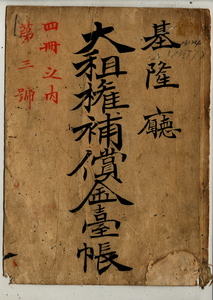 基隆廳
大租権補償金臺帳
四冊之内
第三號